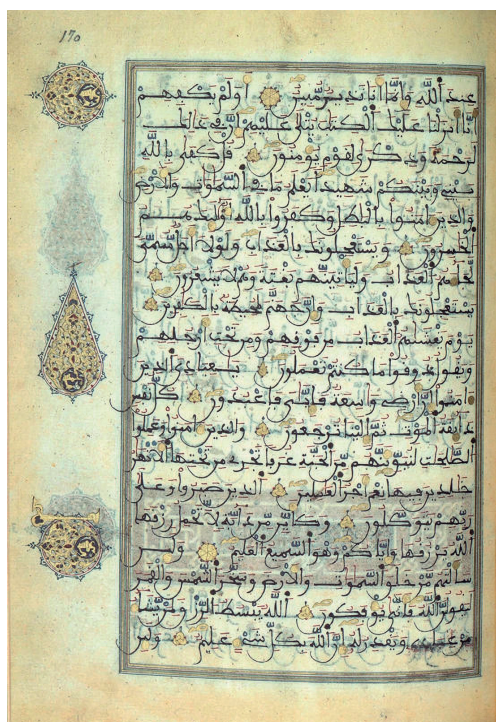 170
عند الله وإنما أنا نذير مبين أولم يكفهم
أنا أنزلنا عليك الكتب يتلى عليهم إن في ذلك
لرحمة وذكرى لقوم يؤمنون قل كفى بالله
بيني وبينكم شهيدا يعلم ما في السموات والأرض
والذين امنوا بالبطل وكفروا بالله أولئك هم
الخسرون ويستعجلونك بالعذاب ولولا أجل مسمى
لجاءهم العذاب وليأتينهم بغتة وهم لا يشعرون
يستعجلونك بالعذاب وإن جهنم لمحيطة بالكفرين
يوم يغشيهم العذاب من فوقهم ومن تحت أرجلهم
ويقول ذوقوا ما كنتم تعملون يعبادي الذين
امنوا إن أرضي واسعة فإياي فاعبدون كل نفس
ذائقة الموت ثم إلينا ترجعون والذين امنوا وعملوا
الصلحت لنبوئنهم من الجنة غرفا تجري من تحتها الأنهر
خالدين فيها نعم أجر العملين الذين صبروا وعلى
ربهم يتوكلون وكأين من دابة لا تحمل رزقها
الله يرزقها وإياكم وهو السميع العليم ولئن
سألتهم من خلق السموات والأرض وسخر الشمس والقمر
ليقولن الله فأنى يؤفكون الله يبسط الرزق لمن يشاء
من عباده ويقدر له إن الله بكل شيء عليم ولئن